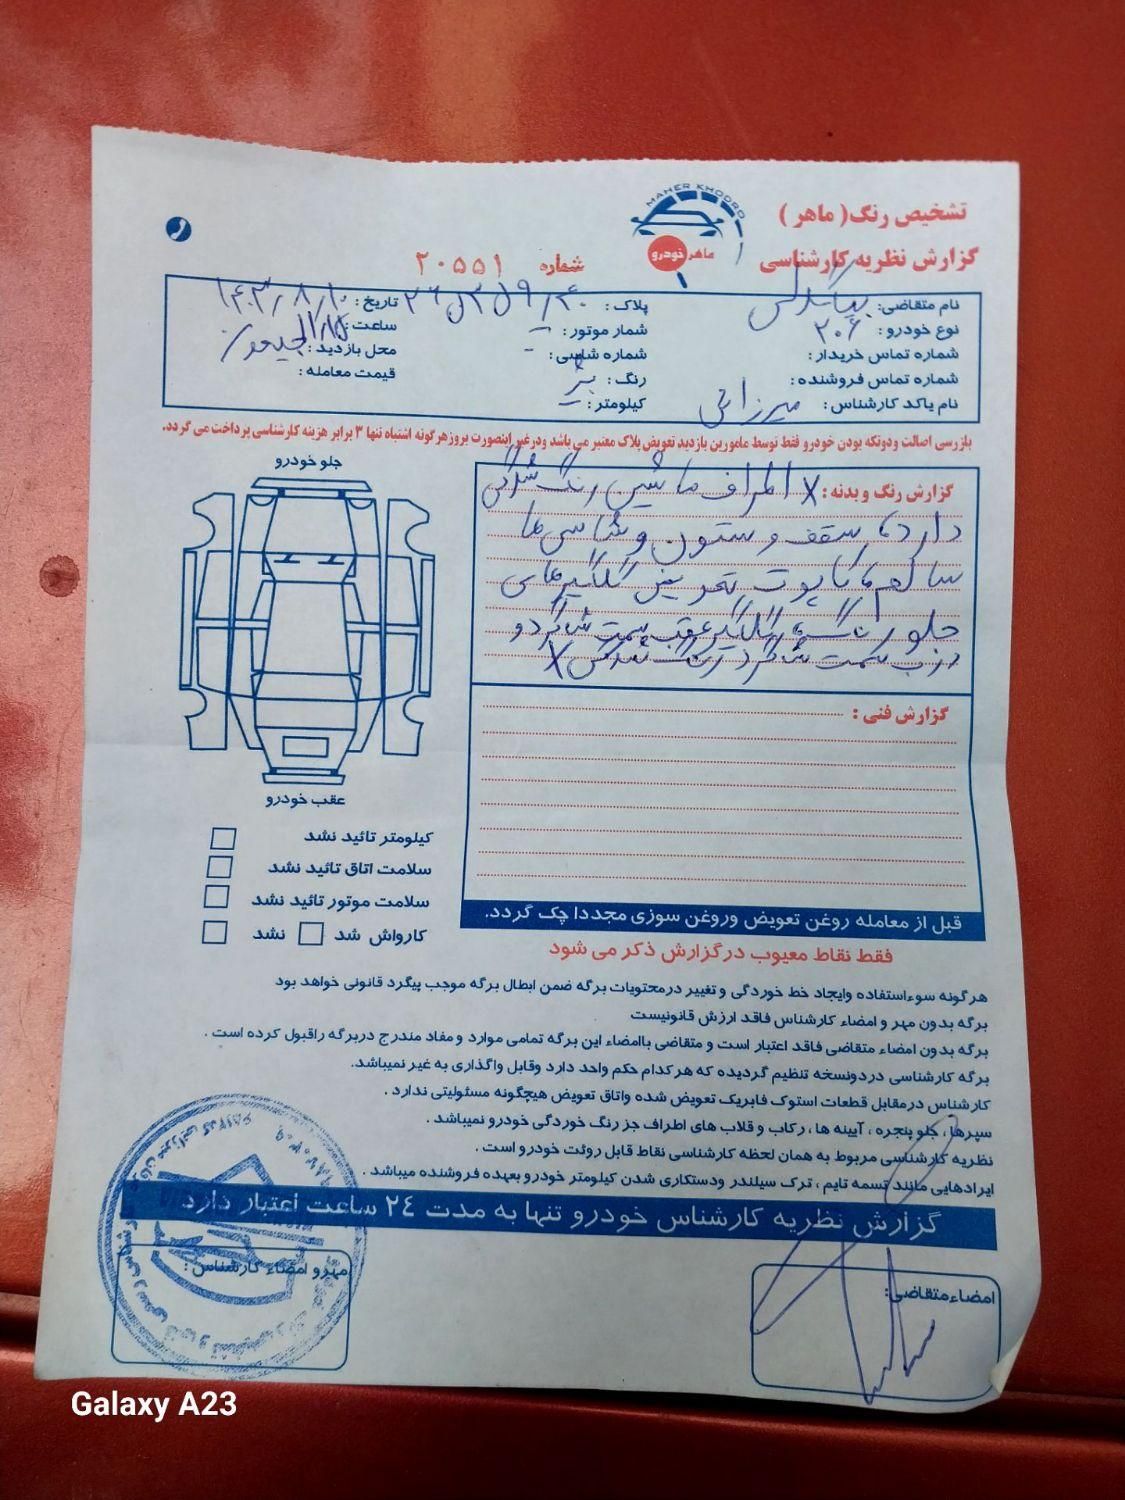 MAHER KHODRO
ماهر خودرو
تشخیص رنگ ( ماهر )
گزارش نظریه کارشناسی
شماره ۲۰۵۵۱
نام متقاضی:
پلاک:
تاریخ: ۱۴۰۳/۸/۱۰
نوع خودرو: ۲۰۶
شمار موتور: -
ساعت:
شماره تماس خریدار:
شماره شاسی: -
محل بازدید:
شماره تماس فروشنده:
رنگ:
قیمت معامله:
نام یاکد کارشناس: میرزائی
کیلومتر:
بازرسی اصالت ودوتکه بودن خودرو فقط توسط مامورین بازدید تعویض پلاک معتبر می باشد ودرغیر اینصورت بروزهرگونه اشتباه تنها ۳ برابر هزینه کارشناسی پرداخت می گردد.
جلو خودرو
گزارش رنگ و بدنه: x اطراف ماشین رنگ شدگی
دارد، سقف و ستون و شاسی ها
سالم، کاپوت تعویض گلگیرهای
جلو رنگ، گلگیر عقب سمت شاگرد و
درب سمت شاگرد رنگ شدگی x
گزارش فنی:
عقب خودرو
کیلومتر تائید نشد
سلامت اتاق تائید نشد
سلامت موتور تائید نشد
کارواش شد نشد
قبل از معامله روغن تعویض وروغن سوزی مجددا چک گردد.
فقط نقاط معیوب درگزارش ذکر می شود
هرگونه سوءاستفاده وایجاد خط خوردگی و تغییر درمحتویات برگه ضمن ابطال برگه موجب پیگرد قانونی خواهد بود
برگه بدون مهر و امضاء کارشناس فاقد ارزش قانونیست
برگه بدون امضاء متقاضی فاقد اعتبار است و متقاضی باامضاء این برگه تمامی موارد و مفاد مندرج دربرگه راقبول کرده است .
برگه کارشناسی دردونسخه تنظیم گردیده که هرکدام حکم واحد دارد وقابل واگذاری به غیر نمیباشد.
کارشناس درمقابل قطعات استوک فابریک تعویض شده واتاق تعویض هیچگونه مسئولیتی ندارد .
سپرها ، جلو پنجره ، آیینه ها ، رکاب و قلاب های اطراف جز رنگ خوردگی خودرو نمیباشد .
نظریه کارشناسی مربوط به همان لحظه کارشناسی نقاط قابل روئت خودرو است .
ایرادهایی مانند تسمه تایم ، ترک سیلندر ودستکاری شدن کیلومتر خودرو بعهده فروشنده میباشد .
گزارش نظریه کارشناس خودرو تنها به مدت ۲۴ ساعت اعتبار دارد
امضاء متقاضی:
مهرو امضاء کارشناس :
Galaxy A23